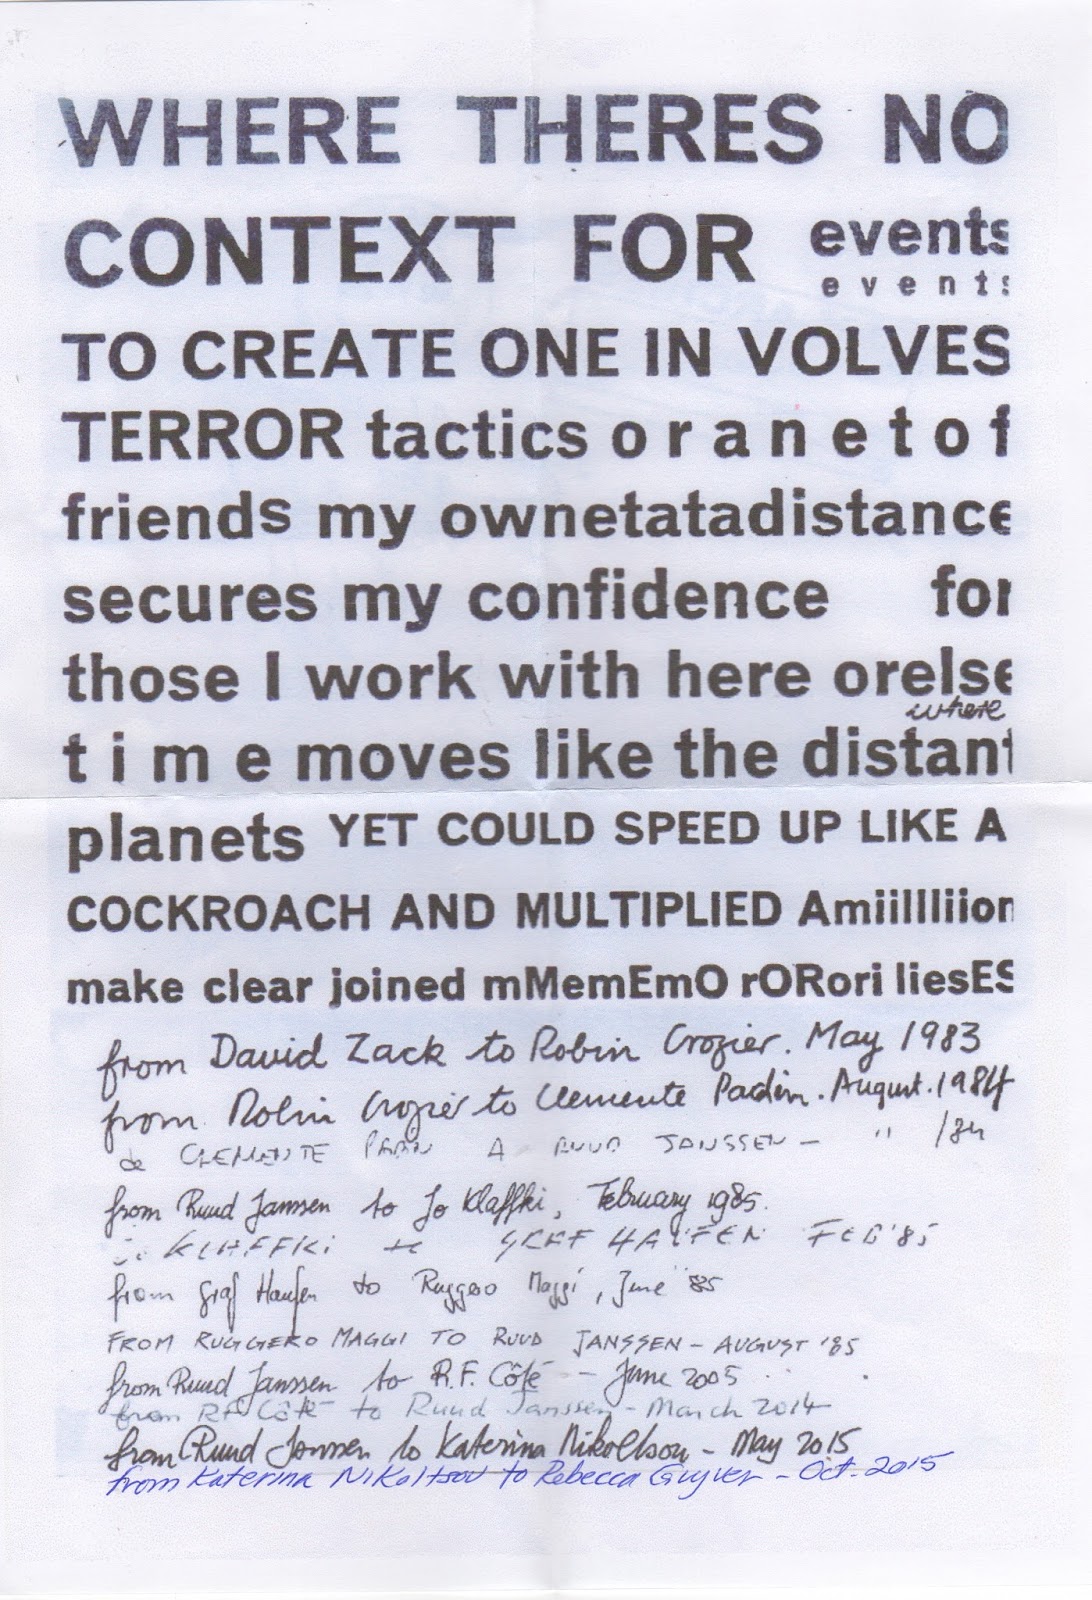 WHERE THERES NO
CONTEXT FOR events
events
TO CREATE ONE IN VOLVES
TERROR tactics o r a n e t o f
friends my ownetatadistance
secures my confidence for
those I work with here orelse
where
t i m e moves like the distant
planets YET COULD SPEED UP LIKE A
COCKROACH AND MULTIPLIED Amiillliion
make clear joined mMemEmO rORori liesES
from David Zack to Robin Crozier. May 1983
from Robin Crozier to Clemente Padin. August. 1984
de CLEMENTE PADIN A RUUD JANSSEN - " /84
from Ruud Janssen to Jo Klaffki, February 1985.
KLAFFKI GRAF HAUFEN FEB '85
from Graf Haufen to Ruggero Maggi, June '85
FROM RUGGERO MAGGI TO RUUD JANSSEN - AUGUST '85
from Ruud Janssen to R.F. Côté - June 2005
from RF Côté to Ruud Janssen - March 2014
from Ruud Janssen to Katerina Nikoltsou - May 2015
from Katerina Nikoltsou to Rebecca Guyver - Oct. 2015